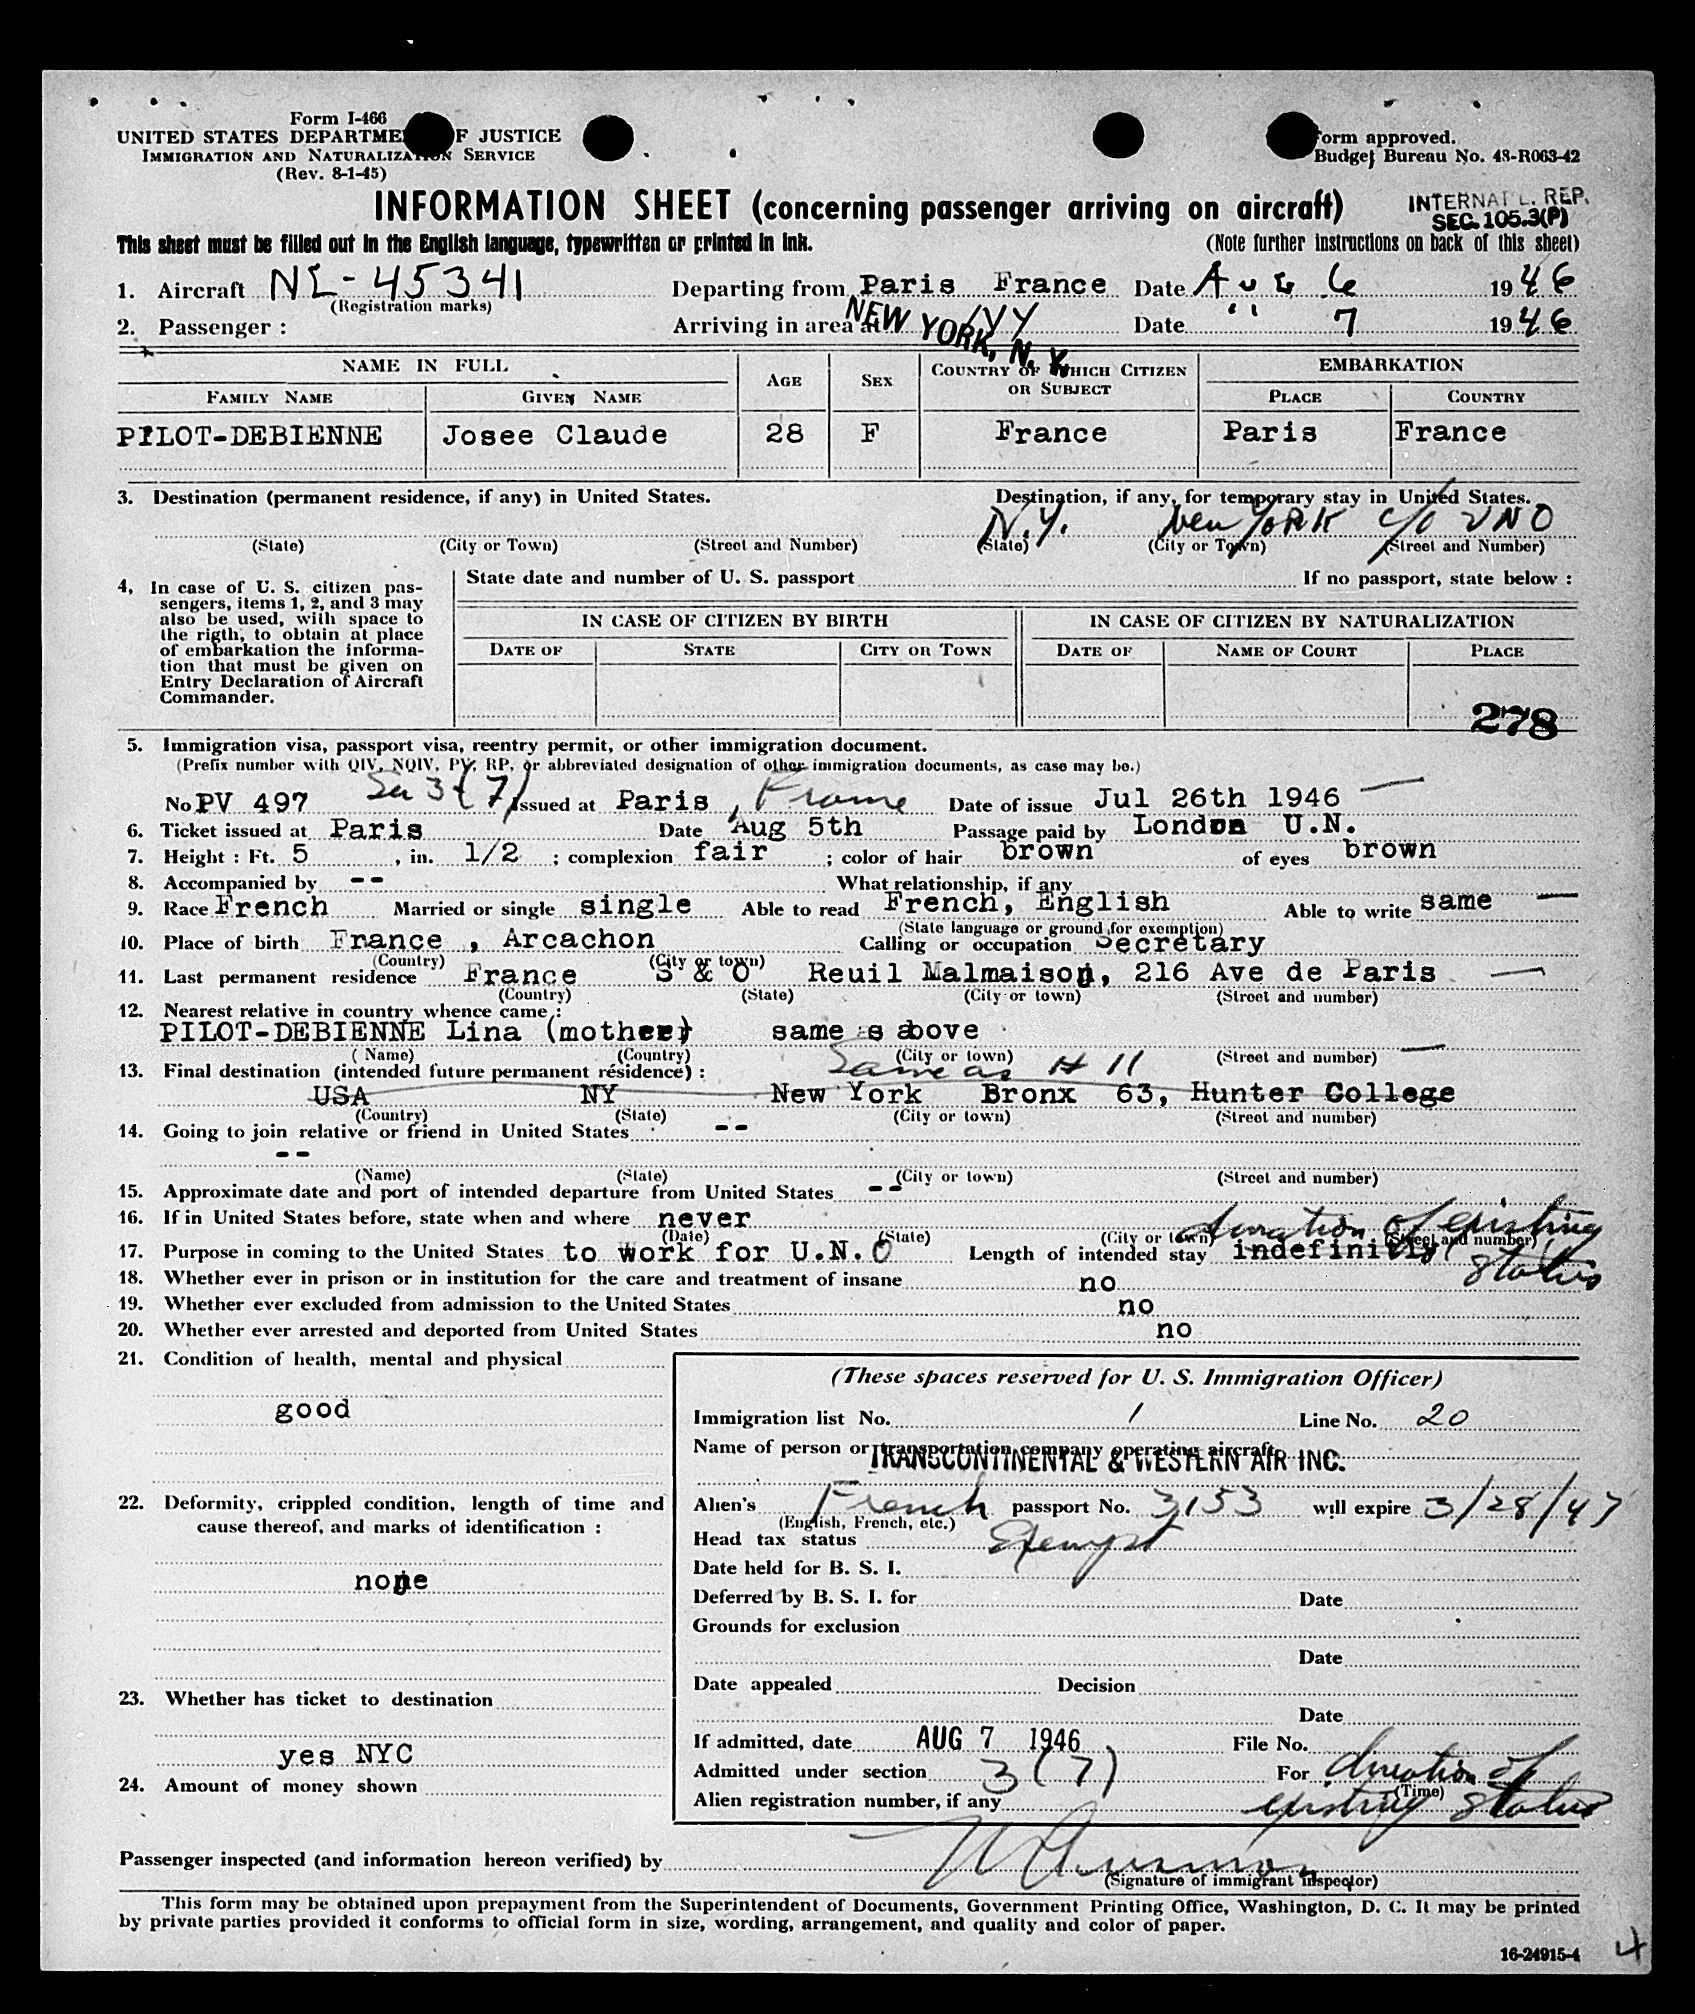 Form I-466
UNITED STATES DEPARTME F JUSTICE
IMMIGRATION AND NATURALIZATION SERVICE
(Rev. 8-1-45)
Form approved.
Budget Bureau No. 43-R063-42
INFORMATION SHEET (concerning passenger arriving on aircraft)
INTERNAT'L. REP.
SEC. 105.3(P)
This sheet must be filled out in the English language, typewritten or printed in ink.
(Note further instructions on back of this sheet)
1. Aircraft NL-45341 Departing from Paris France Date Aug 6 1946
(Registration marks)
2. Passenger : Arriving in area at NEW YORK, N.Y. NY Date " 7 1946
NAME IN FULL AGE SEX COUNTRY OF WHICH CITIZEN OR SUBJECT EMBARKATION
FAMILY NAME GIVEN NAME PLACE COUNTRY
PILOT-DEBIENNE Josee Claude 28 F France Paris France
3. Destination (permanent residence, if any) in United States. Destination, if any, for temporary stay in United States.
N.Y. New York c/o UNO
(State) (City or Town) (Street and Number) (State) (City or Town) (Street and Number)
4, In case of U. S. citizen pas-
sengers, items 1, 2, and 3 may
also be used, with space to
the rigth, to obtain at place
of embarkation the informa-
tion that must be given on
Entry Declaration of Aircraft
Commander.
State date and number of U. S. passport If no passport, state below :
IN CASE OF CITIZEN BY BIRTH IN CASE OF CITIZEN BY NATURALIZATION
DATE OF STATE CITY OR TOWN DATE OF NAME OF COURT PLACE
278
5. Immigration visa, passport visa, reentry permit, or other immigration document.
(Prefix number with QIV, NQIV, PV, RP, or abbreviated designation of other immigration documents, as case may be.)
No PV 497 Sec 3(7) Issued at Paris, France Date of issue Jul 26th 1946
6. Ticket issued at Paris Date Aug 5th Passage paid by London U.N.
7. Height : Ft. 5 , in. 1/2 ; complexion fair ; color of hair brown of eyes brown
8. Accompanied by -- What relationship, if any
9. Race French Married or single single Able to read French, English Able to write same
(State language or ground for exemption)
10. Place of birth France , Arcachon Calling or occupation Secretary
(Country) (City or town)
11. Last permanent residence France S & O Reuil Malmaison, 216 Ave de Paris
(Country) (State) (City or town) (Street and number)
12. Nearest relative in country whence came :
PILOT-DEBIENNE Lina (mother) same as above
( Name) (Country) (City or town) (Street and number)
13. Final destination (intended future permanent résidence) : Same as # 11
USA NY New York Bronx 63, Hunter College
(Country) (State) (City or town) (Street and number)
14. Going to join relative or friend in United States --
--
(Name) (State) (City or town) (Street and number)
15. Approximate date and port of intended departure from United States --
16. If in United States before, state when and where never
(Date) (State) (City or town) (Street and number)
duration of existing
17. Purpose in coming to the United States to work for U.N.O Length of intended stay indefinitly
status
18. Whether ever in prison or in institution for the care and treatment of insane no
19. Whether ever excluded from admission to the United States no
20. Whether ever arrested and deported from United States no
21. Condition of health, mental and physical
good
22. Deformity, crippled condition, length of time and
cause thereof, and marks of identification :
none
23. Whether has ticket to destination
yes NYC
24. Amount of money shown
(These spaces reserved for U. S. Immigration Officer)
Immigration list No. 1 Line No. 20
Name of person or transportation company operating aircraft
TRANSCONTINENTAL & WESTERN AIR INC.
Alien's French passport No. 3153 will expire 3/28/47
(English, French, etc.)
Head tax status Exempt
Date held for B. S. I.
Deferred by B. S. I. for Date
Grounds for exclusion
Date
Date appealed Decision
Date
If admitted, date AUG 7 1946 File No.
Admitted under section 3(7) For duration of
(Time)
Alien registration number, if any existing status
Passenger inspected (and information hereon verified) by
(Signature of immigrant inspector)
This form may be obtained upon prepayment from the Superintendent of Documents, Government Printing Office, Washington, D. C. It may be printed
by private parties provided it conforms to official form in size, wording, arrangement, and quality and color of paper.
16-24915-4
4